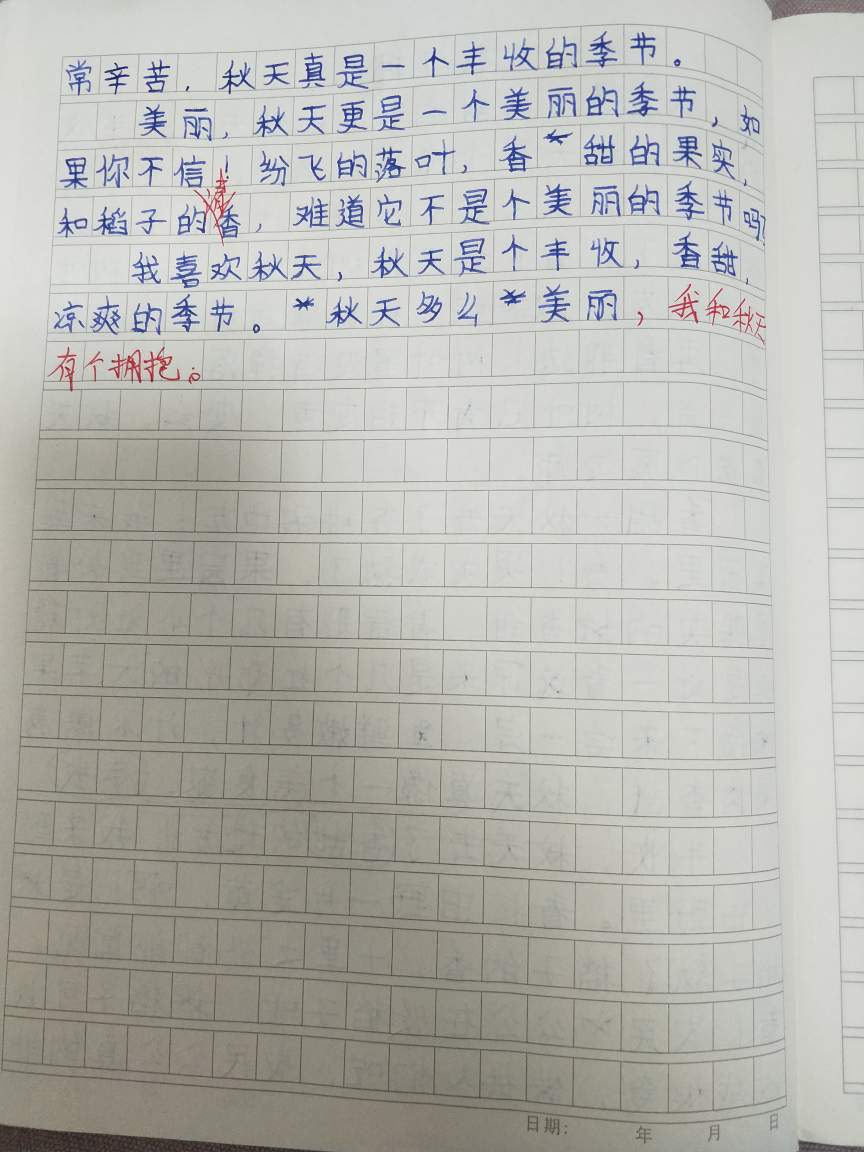 常辛苦，秋天真是一个丰收的季节。
美丽，秋天更是一个美丽的季节，如
果你不信！纷飞的落叶，香*甜的果实，
清
和稻子的香，难道它不是个美丽的季节吗？
我喜欢秋天，秋天是个丰收，香甜，
凉爽的季节。*秋天多么*美丽，我和秋天
有个拥抱。
日期： 年 月 日